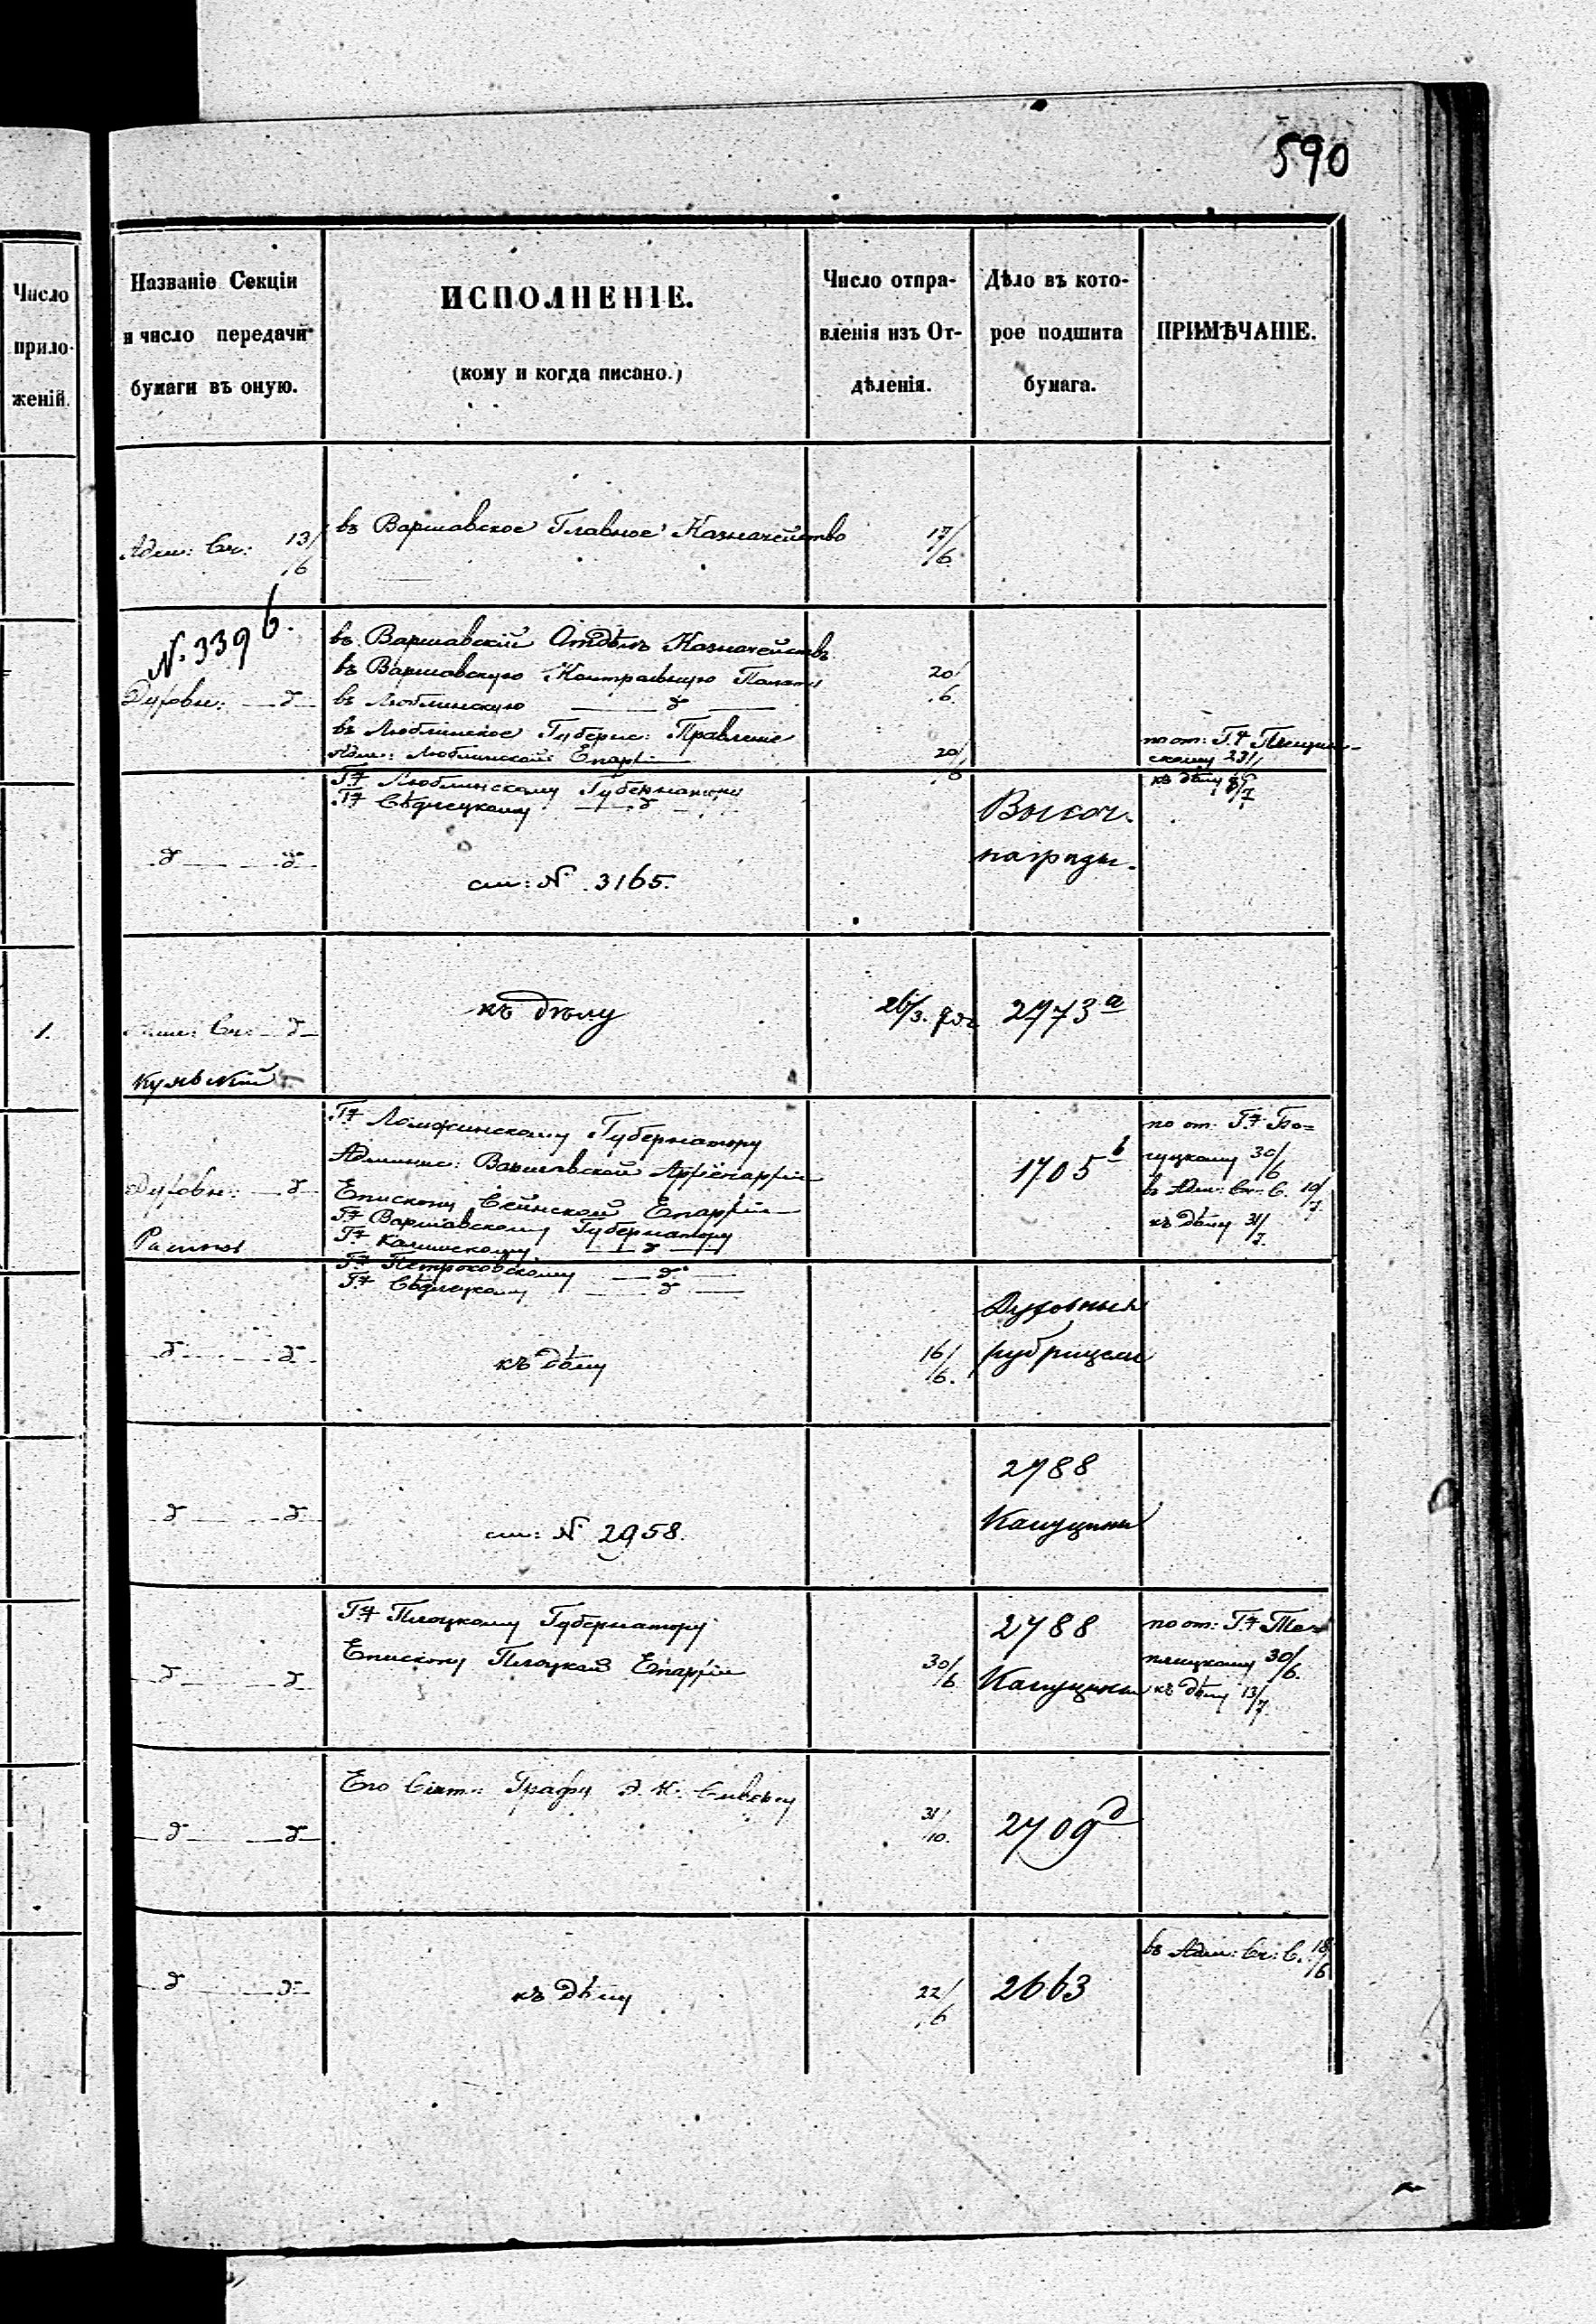 590
Число
прило-
женій.
Названіе Секціи
и число передачи
бумаги въ оную.
ИСПОЛНЕНІЕ.
(кому и когда писано.)
Число отпра-
вленія изъ От-
дѣленія.
Дѣло въ кото-
рое подшита
бумага.
ПРИМѢЧАНІЕ.
Адм: Сч: 13/6
въ Варшавское Главное Казначейство
17/6
№ 3396.
Духовн: — д —
въ Варшавскій Отдѣлъ Казначействъ
въ Варшавскую Контрольную Палату
въ Люблинскую — д —
въ Люблинское Губерн: Правленіе
Адм: Люблинской Епархіи
20/6
20/6
по от: Г.
скому 23/6
къ дѣлу
Г. Люблинскому Губернатору
Г. Сѣдлецкому — д —
— д — — д —
см: № 3165.
Высоч.
награды.
1.
Сч: — д —
къ дѣлу
26/3.
2773 а
Духовн: — д —
Г. Ломжинскому Губернатору
Админис: Варшавской Архіепархіи
Епископу Сейнской Епархіи
Г. Варшавскому Губернатору
Г. Калишскому — д —
Г. Петроковскому — д —
Г. Сѣдлецкому — д —
1705 b
по от: Г. Бо=
гуцкому 30/6
въ Адм: Сч: С. 10/7
къ дѣлу 31/7.
— д — — д —
къ дѣлу
16/6.
Духовныя
рубрицели
— д — — д —
см: № 2958.
2788
Капуцины
— д — — д —
Г. Плоцкому Губернатору
Епископу Плоцкой Епархіи
30/6
2788
Капуцины
по от: Г.
30/6.
къ дѣлу 13/7.
— д — — д —
Его Сіят: Графу Сиверсу
31/10.
2709 д
— д — — д —
къ дѣлу
22/6
2663
въ Адм: Сч: С. 18/6